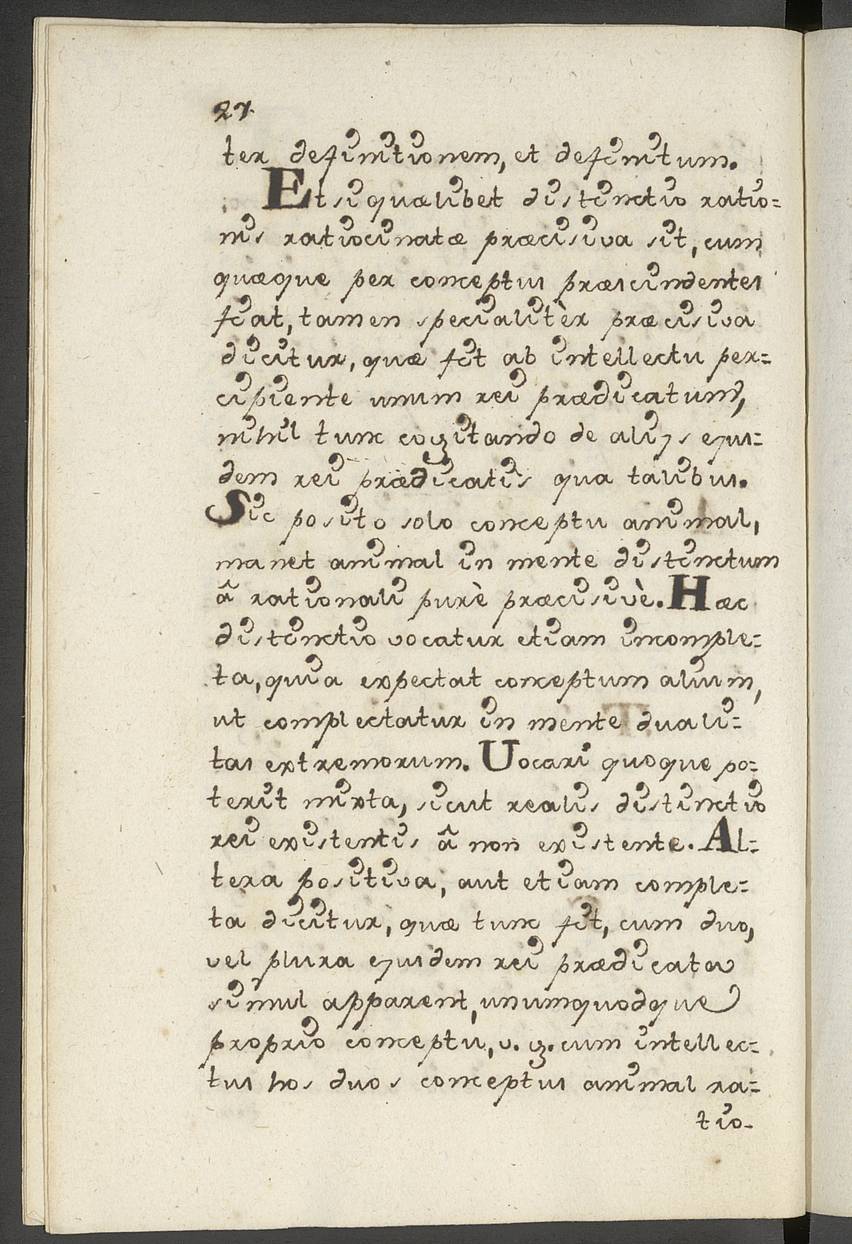 27.
ter definitionem, et definitum.
Etsi quælibet distinctio ratio=
nis ratiocinatæ præcisiva sit, cum
quæque per conceptus præscindentes
fiat, tamen specialitèr præcisiva
dicitur, quæ fit ab intellectu per=
cipiente unum rei prædicatum,
nihil tunc cogitando de alijs ejus=
dem rei prædicatis qua talibus.
Sic posito solo conceptu animal,
manet animal in mente distinctum
â rationali purè præcisivè. Hæc
distinctio vocatur etiam incomple=
ta, quia expectat conceptum alium,
ut complectatur in mente duali=
tas extremorum. Uocari quoque po=
terit mixta, sicut realis distinctio
rei existentis â non existente. Al=
tera positiva, aut etiam comple=
ta dicitur, quæ tunc fit, cum duo,
vel plura ejusdem rei prædicata
simul apparent, unumquodque
proprio conceptu, v. g. cum intellec=
tus hos duos conceptus animal ra=
tio-